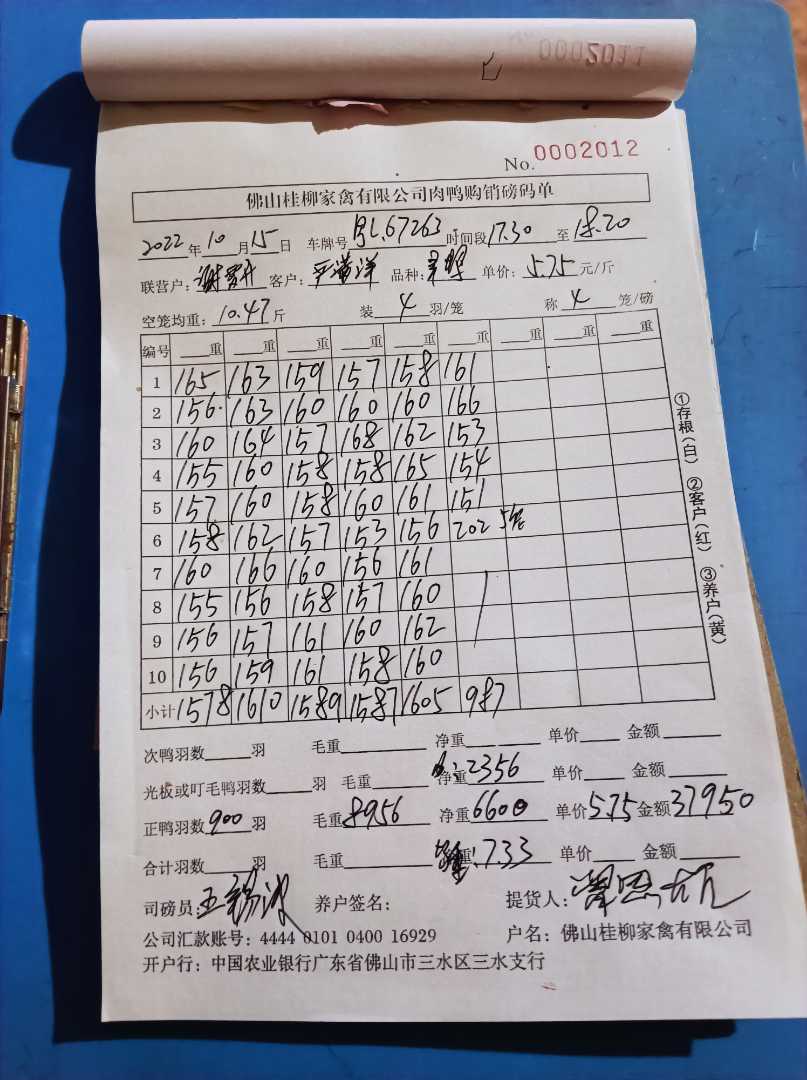 0002011
No. 0002012
佛山桂柳家禽有限公司肉鸭购销磅码单
2022年10月15日 车牌号 L.67263 时间段17.30至18.20
联营户: 客户: 品种: 单价:5.75元/斤
空笼均重:10.47斤 装4羽/笼 称4笼/磅
编号 重 重 重 重 重 重 重 重 重
1 165 163 159 157 158 161
2 156 163 160 160 160 166
3 160 164 157 168 162 153
4 155 160 158 158 165 154
5 157 160 158 160 161 151
6 158 162 157 153 156 202 5笼
7 160 166 160 156 161
8 155 156 158 157 160
9 156 157 161 160 162
10 156 159 161 158 160
小计 1578 1610 1589 1587 1605 987
①存根(白) ②客户(红) ③养户(黄)
次鸭羽数 羽 毛重 净重 单价 金额
光板或叮毛鸭羽数 羽 毛重 净重 2356 单价 金额
正鸭羽数900羽 毛重8956 净重6600 单价5.75 金额37950
合计羽数 羽 毛重 重 7.33 单价 金额
司磅员: 王 养户签名: 提货人:
公司汇款账号: 4444 0101 0400 16929 户名: 佛山桂柳家禽有限公司
开户行: 中国农业银行广东省佛山市三水区三水支行